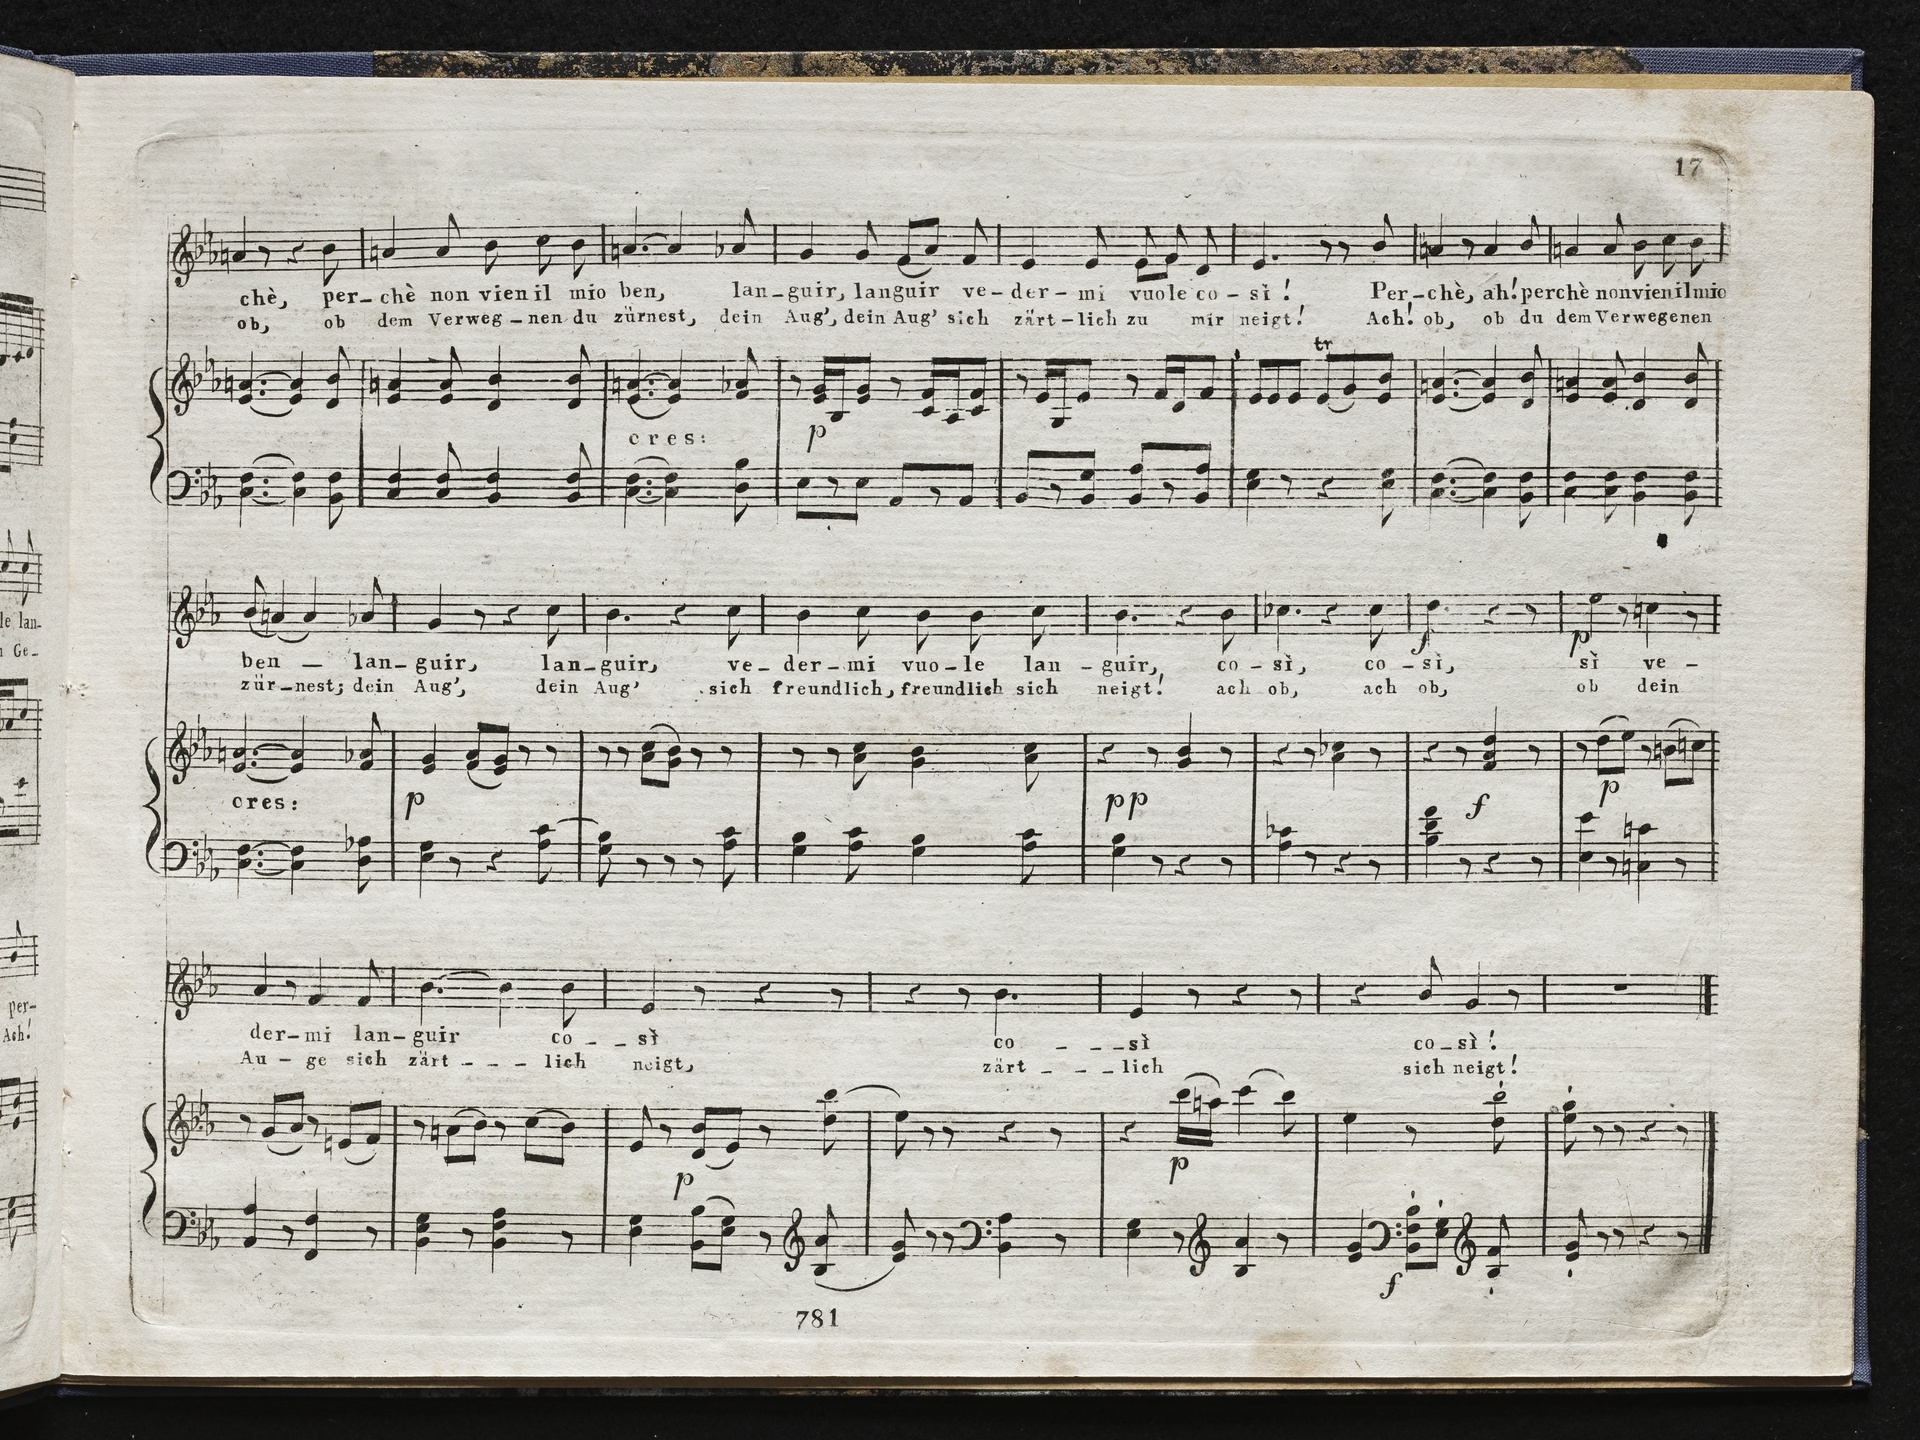 17
chè, per-chè non vien il mio ben, lan-guir, languir ve-der-mi vuole co-sì! Per-chè, ah! perchè non vien il mio
ob, ob dem Verweg-nen du zürnest, dein Aug', dein Aug' sich zärt-lich zu mir neigt! Ach! ob, ob du dem Verwegenen
tr
cres:
p
le lan-
n Ge-
ben — lan-guir, lan-guir, ve-der-mi vuo-le lan-guir, co-sì, co-sì, sì ve-
zür-nest; dein Aug', dein Aug' sich freundlich, freundlich sich neigt! ach ob, ach ob, ob dein
f
p
cres:
p
pp
f
p
per-
Ach!
der-mi lan-guir co - - sì co - - - sì co-sì!
Au-ge sich zärt - - - lich neigt, zärt - - - lich sich neigt!
p
p
f
781